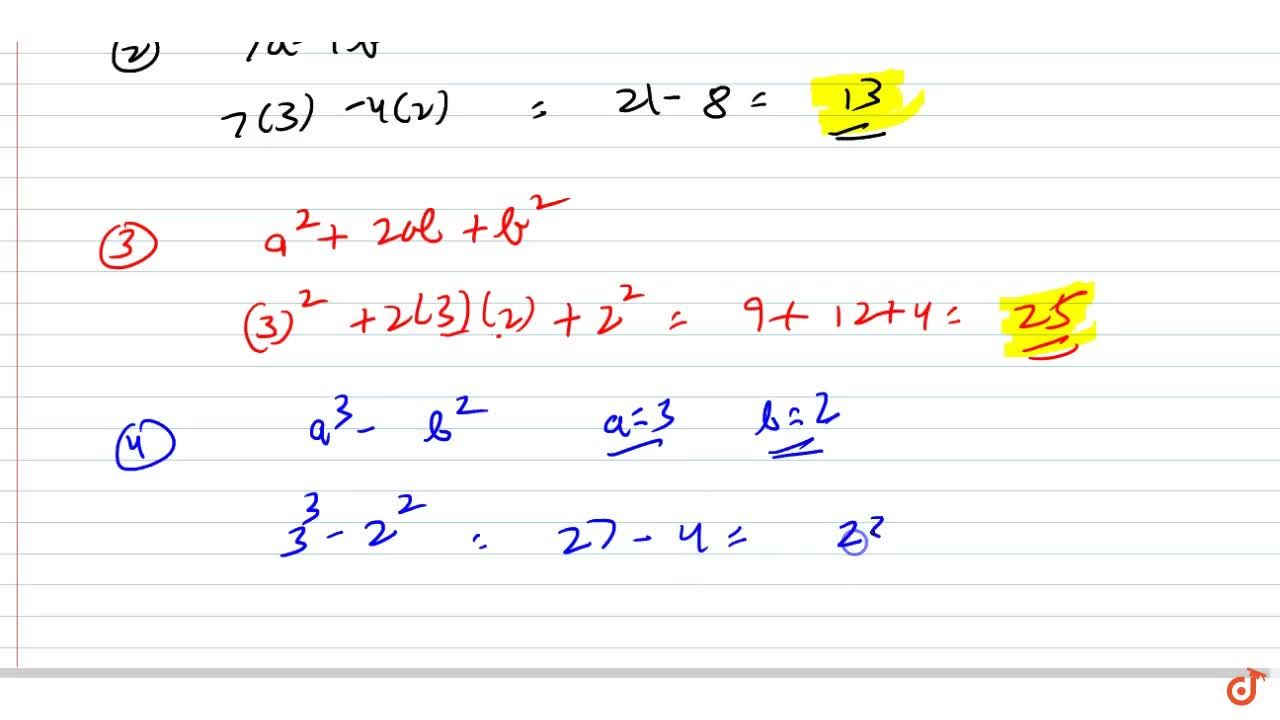 7(3) -4(2) = 21 - 8 = 13
③ a² + 2ab + b²
(3)² + 2(3)(2) + 2² = 9 + 12 + 4 = 25
④ a³ - b² a=3 b=2
3³ - 2² = 27 - 4 =